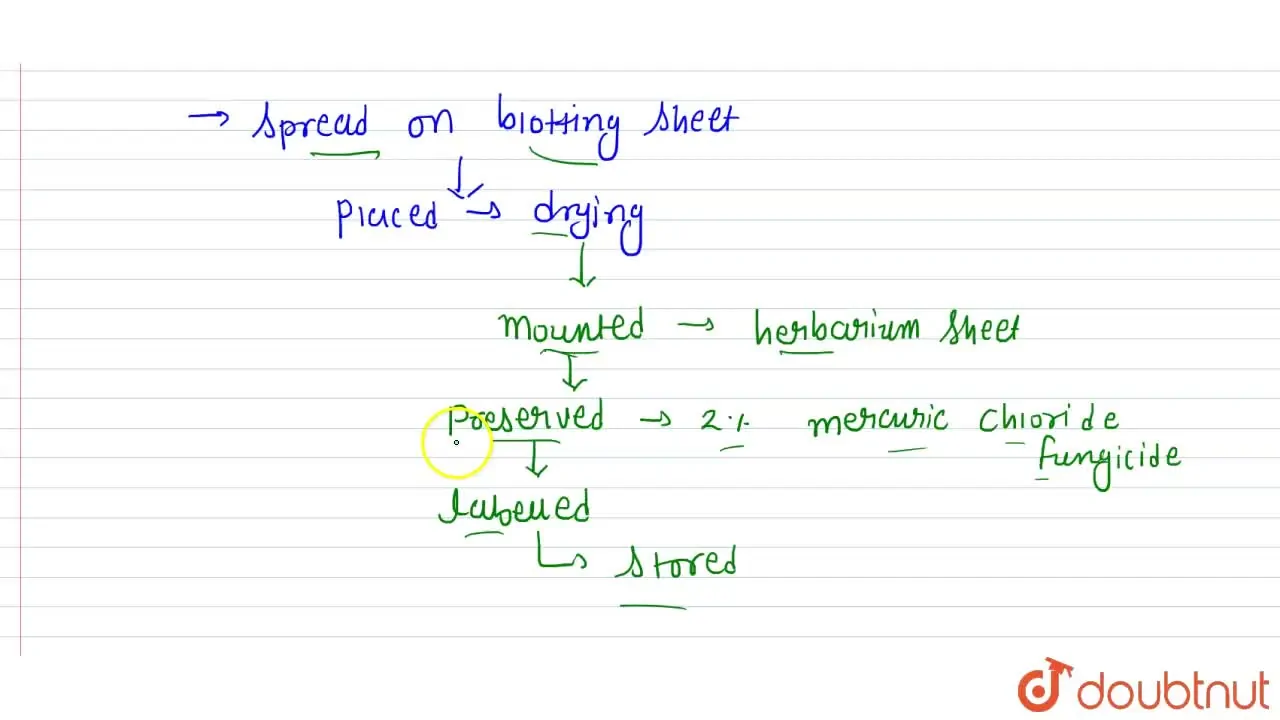 → Spread on blotting sheet
↓
Placed → drying
↓
Mounted → herbarium sheet
↓
Preserved → 2% mercuric chloride
fungicide
↓
labelled
↳ stored
doubtnut